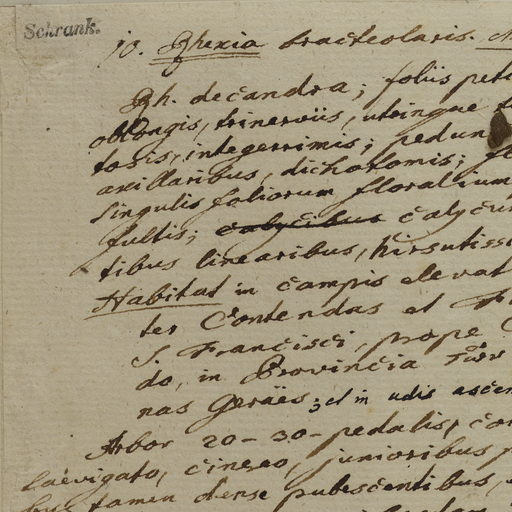 Schrank.
10. Rhexia bracteolaris.
Rh. decandra; foliis
oblongis, trinerviis, utrinque
tosis, integerrimis; pedun
axillaribus, dichotomis;
singulis foliorum floralium
fultis; calycibus
tibus linearibus, hirsutissi
Habitat in campis elevat
ter Contendas et
S. Francisci, prope
do, in Provincia
nas Geraës; et in udis ascen
Arbor 20-30-pedalis, cor
laevigato, cinereo, junioribus
bus tamen dense pubescentibus,